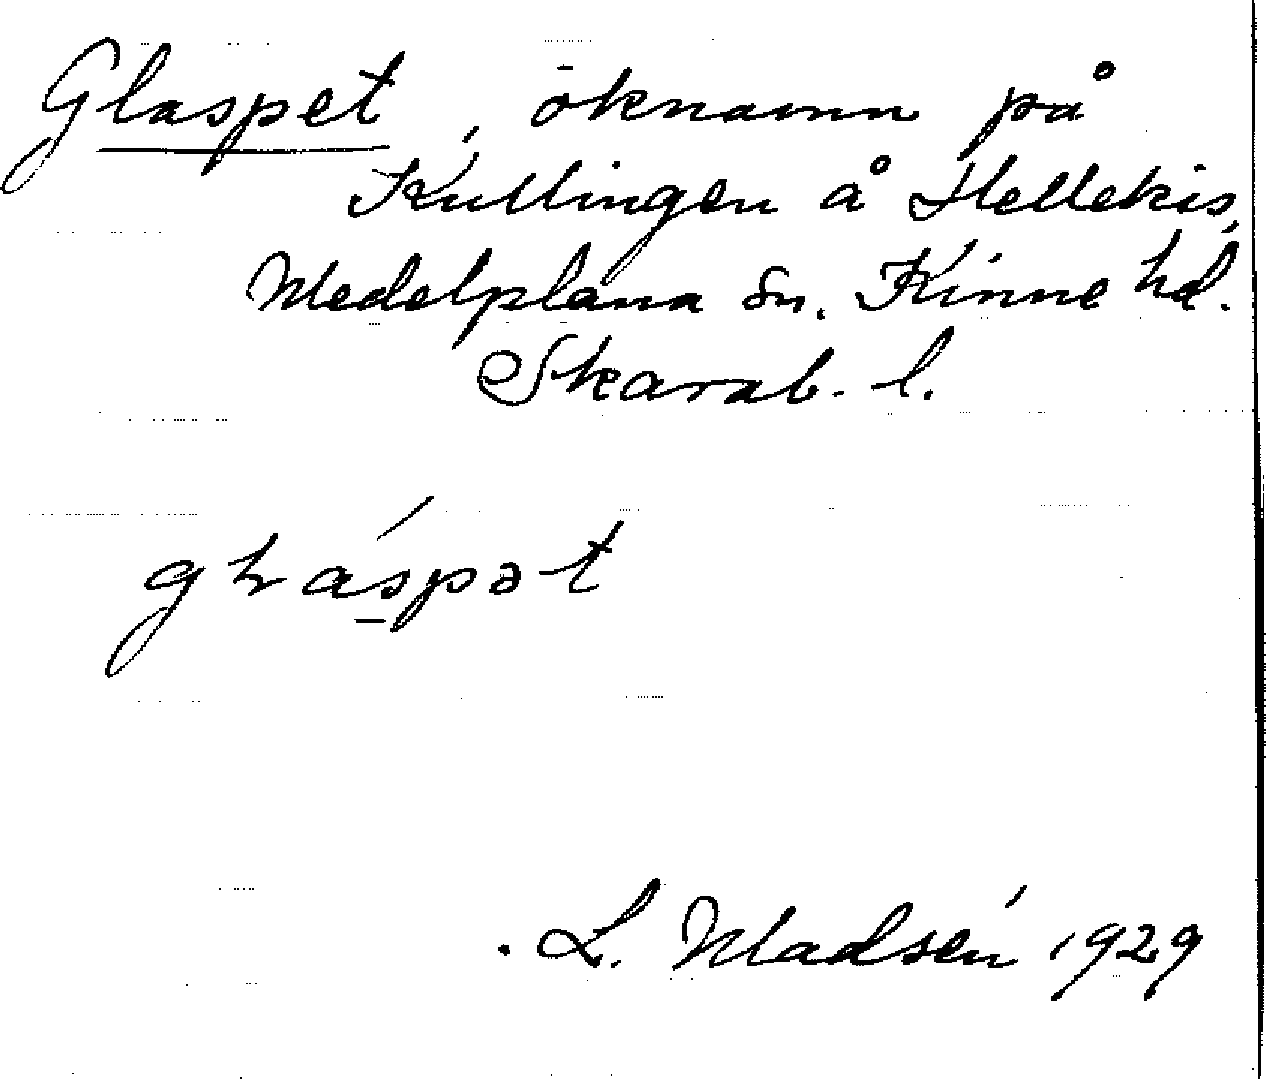 Glaspet, öknamn på
Kullingen å Hellekis,
Medelplana sn. Kinne hd.
Skarab. l.
gɫáspət
L. Madsén 1929